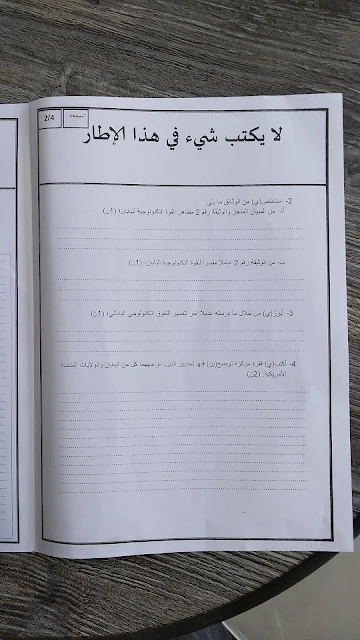 الصفحة
2/4
لا يكتب شيء في هذا الإطار
2- استخلص(ي) من الوثائق ما يلي:
أ- من المبيان المنجز والوثيقة رقم 2 مظاهر القوة التكنولوجية لليابان؛ (1ن)
ب- من الوثيقة رقم 2، عاملا مفسرا للقوة التكنولوجية لليابان؛ (1ن)
3- أبرز(ي) من خلال ما درسته عاملا آخر لتفسير التفوق التكنولوجي الياباني؛ (1ن)
4- أكتب(ي) فقرة مركزة توضح(ين) فيها تحديين اثنين تواجههما كل من اليابان والولايات المتحدة
الأمريكية. (2ن)